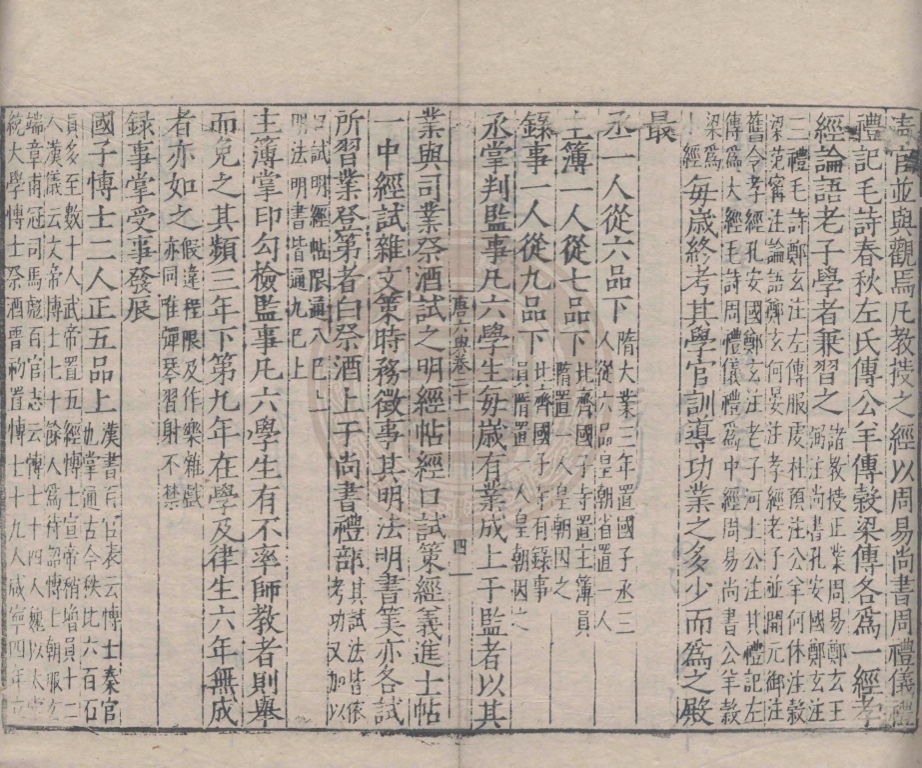 壽官並與觀焉凡教授之經以周易尚書周禮儀禮
禮記毛詩春秋左氏傳公羊傳穀梁傳各爲一經孝
經論語老子學者兼習之諸教授正業周易鄭玄王
弼注尚書孔安國鄭玄注
三禮毛詩鄭玄注左傳服虔杜預注公羊何休注穀
梁范甯注論語鄭玄何晏注孝經老子並開元御注
舊令孝經孔安國鄭玄注老子河上公注其禮記左
傳爲大經毛詩周禮儀禮爲中經周易尚書公羊穀
梁爲
經
每歲終考其學官訓導功業之多少而爲之殿
最
丞一人從六品下隋大業三年置國子丞三
人從六品皇朝省置一人
主簿一人從七品下北齊國子寺置主簿員
隋置一人皇朝因之
錄事一人從九品下北齊國子寺有錄事
員隋置一人皇朝因之
丞掌判監事凡六學生每歲有業成上于監者以其
唐六典卷二十一
四
業與司業祭酒試之明經帖經口試策經義進士帖
一中經試雜文策時務徵事其明法明書筭亦各試
所習業登第者白祭酒上于尚書禮部其試法皆依
考功又加以
口試明經帖限通八已上
明法明書皆通九已上
主簿掌印勾檢監事凡六學生有不率師教者則舉
而免之其頻三年下第九年在學及律生六年無成
者亦如之假違程限及作樂雜戲
亦同唯彈琴習射不禁
録事掌受事發辰
國子博士二人正五品上漢書百官表云博士秦官
也掌通古今秩比六百石
員多至數十人武帝置五經博士宣帝稍增員十二
人漢儀云文帝博士七十餘人爲待詔博士朝服玄
端章甫冠司馬彪百官志云博士十四人魏以太常
統太學博士祭酒晋初置博士十九人咸寧四年立